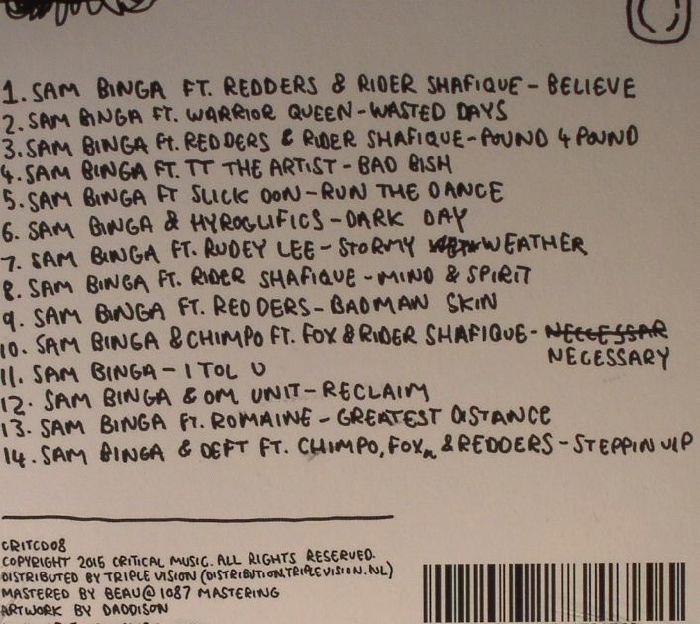 1. SAM BINGA FT. REDDERS & RIDER SHAFIQUE - BELIEVE
2. SAM BINGA FT. WARRIOR QUEEN - WASTED DAYS
3. SAM BINGA Ft. REDDERS & RIDER SHAFIQUE - POUND 4 POUND
4. SAM BINGA FT. TT THE ARTIST - BAD BISH
5. SAM BINGA FT SLICK DON - RUN THE DANCE
6. SAM BINGA & HYROGLIFICS - DARK DAY
7. SAM BINGA FT. RUDEY LEE - STORMY WEATHER
8. SAM BINGA FT. RIDER SHAFIQUE - MIND & SPIRIT
9. SAM BINGA FT. REDDERS - BADMAN SKIN
10. SAM BINGA & CHIMPO FT. FOX & RIDER SHAFIQUE - NECCESSAR
NECESSARY
11. SAM BINGA - I TOL U
12. SAM BINGA & OM UNIT - RECLAIM
13. SAM BINGA FT. ROMAINE - GREATEST DISTANCE
14. SAM BINGA & DEFT FT. CHIMPO, FOX, & REDDERS - STEPPIN VIP
CRITCD08
COPYRIGHT 2015 CRITICAL MUSIC. ALL RIGHTS RESERVED.
DISTRIBUTED BY TRIPLE VISION (DISTRIBUTION.TRIPLEVISION.NL)
MASTERED BY BEAU @ 1087 MASTERING
ARTWORK BY DADDISON